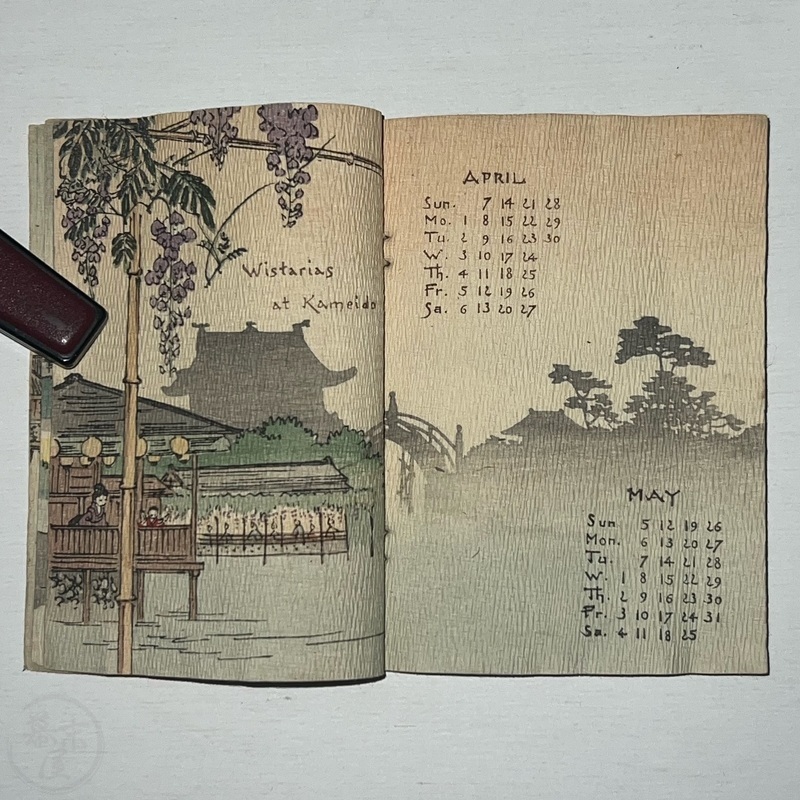 Wistarias
at Kameido
APRIL
Sun. 7 14 21 28
Mo. 1 8 15 22 29
Tu. 2 9 16 23 30
W. 3 10 17 24
Th. 4 11 18 25
Fr. 5 12 19 26
Sa. 6 13 20 27
MAY
Sun 5 12 19 26
Mon. 6 13 20 27
Tu. 7 14 21 28
W. 1 8 15 22 29
Th. 2 9 16 23 30
Fr. 3 10 17 24 31
Sa. 4 11 18 25